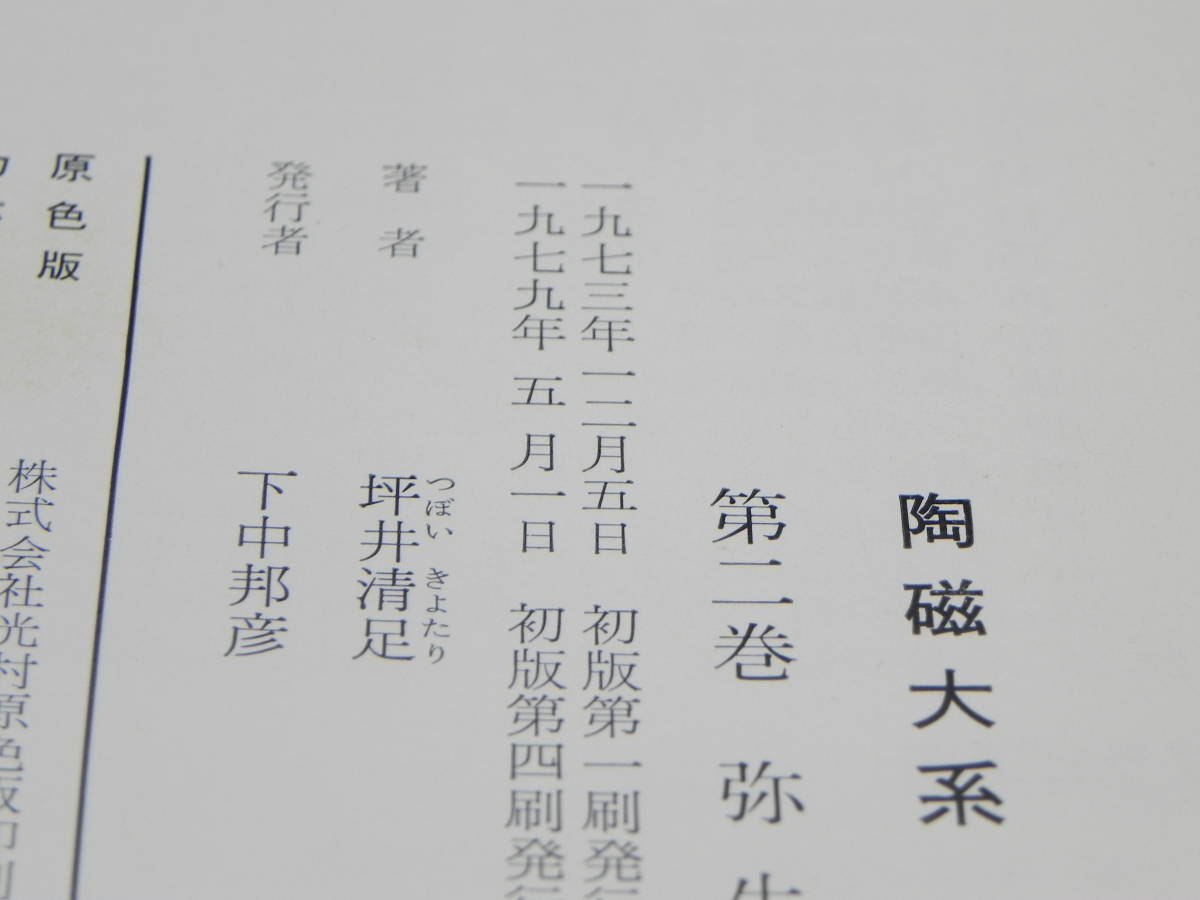 陶磁大系
第二巻 弥生
一九七三年一二月五日 初版第一刷発行
一九七九年 五月一日 初版第四刷発行
著者 坪井清足
つぼい きよたり
発行者 下中邦彦
原色版 株式会社光村原色版印刷